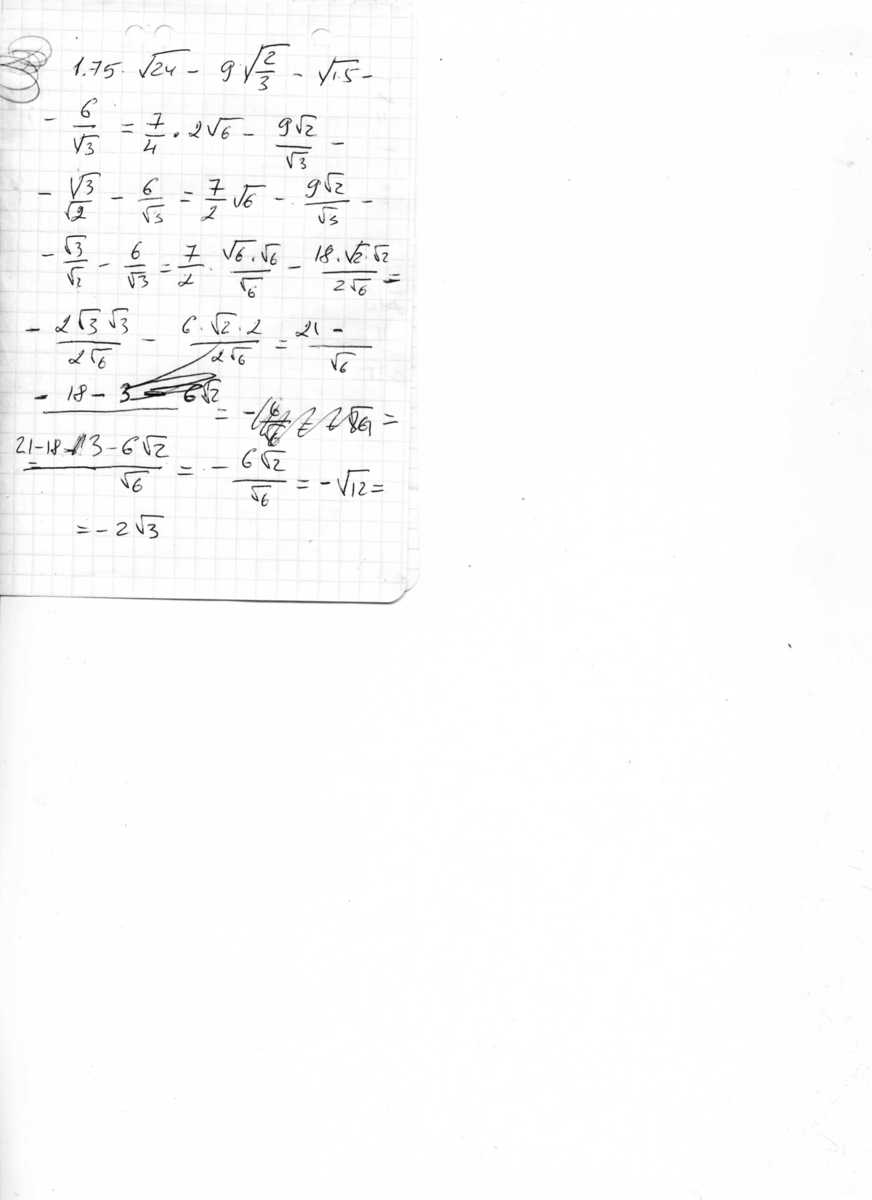 1.75 · √24 - 9 · √(2/3) - √1.5 -
- 6/√3 = 7/4 · 2√6 - 9√2/√3 -
- √3/√2 - 6/√3 = 7/2 √6 - 9√2/√3 -
- √3/√2 - 6/√3 = 7/2 · √6 · √6/√6 - 18 · √2 · √2/2√6 =
- 2√3 √3/2√6 - 6 · √2 · 2/2√6 = 21 - /√6
- 18 - 3 - 6√2 = - =
21 - 18 - 3 - 6√2/√6 = - 6√2/√6 = - √12 =
= - 2√3